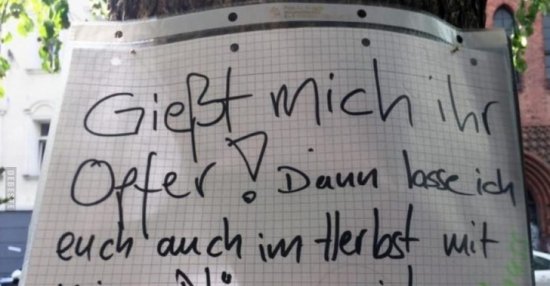 Gießt mich ihr
Opfer! Dann lasse ich
euch auch im Herbst mit